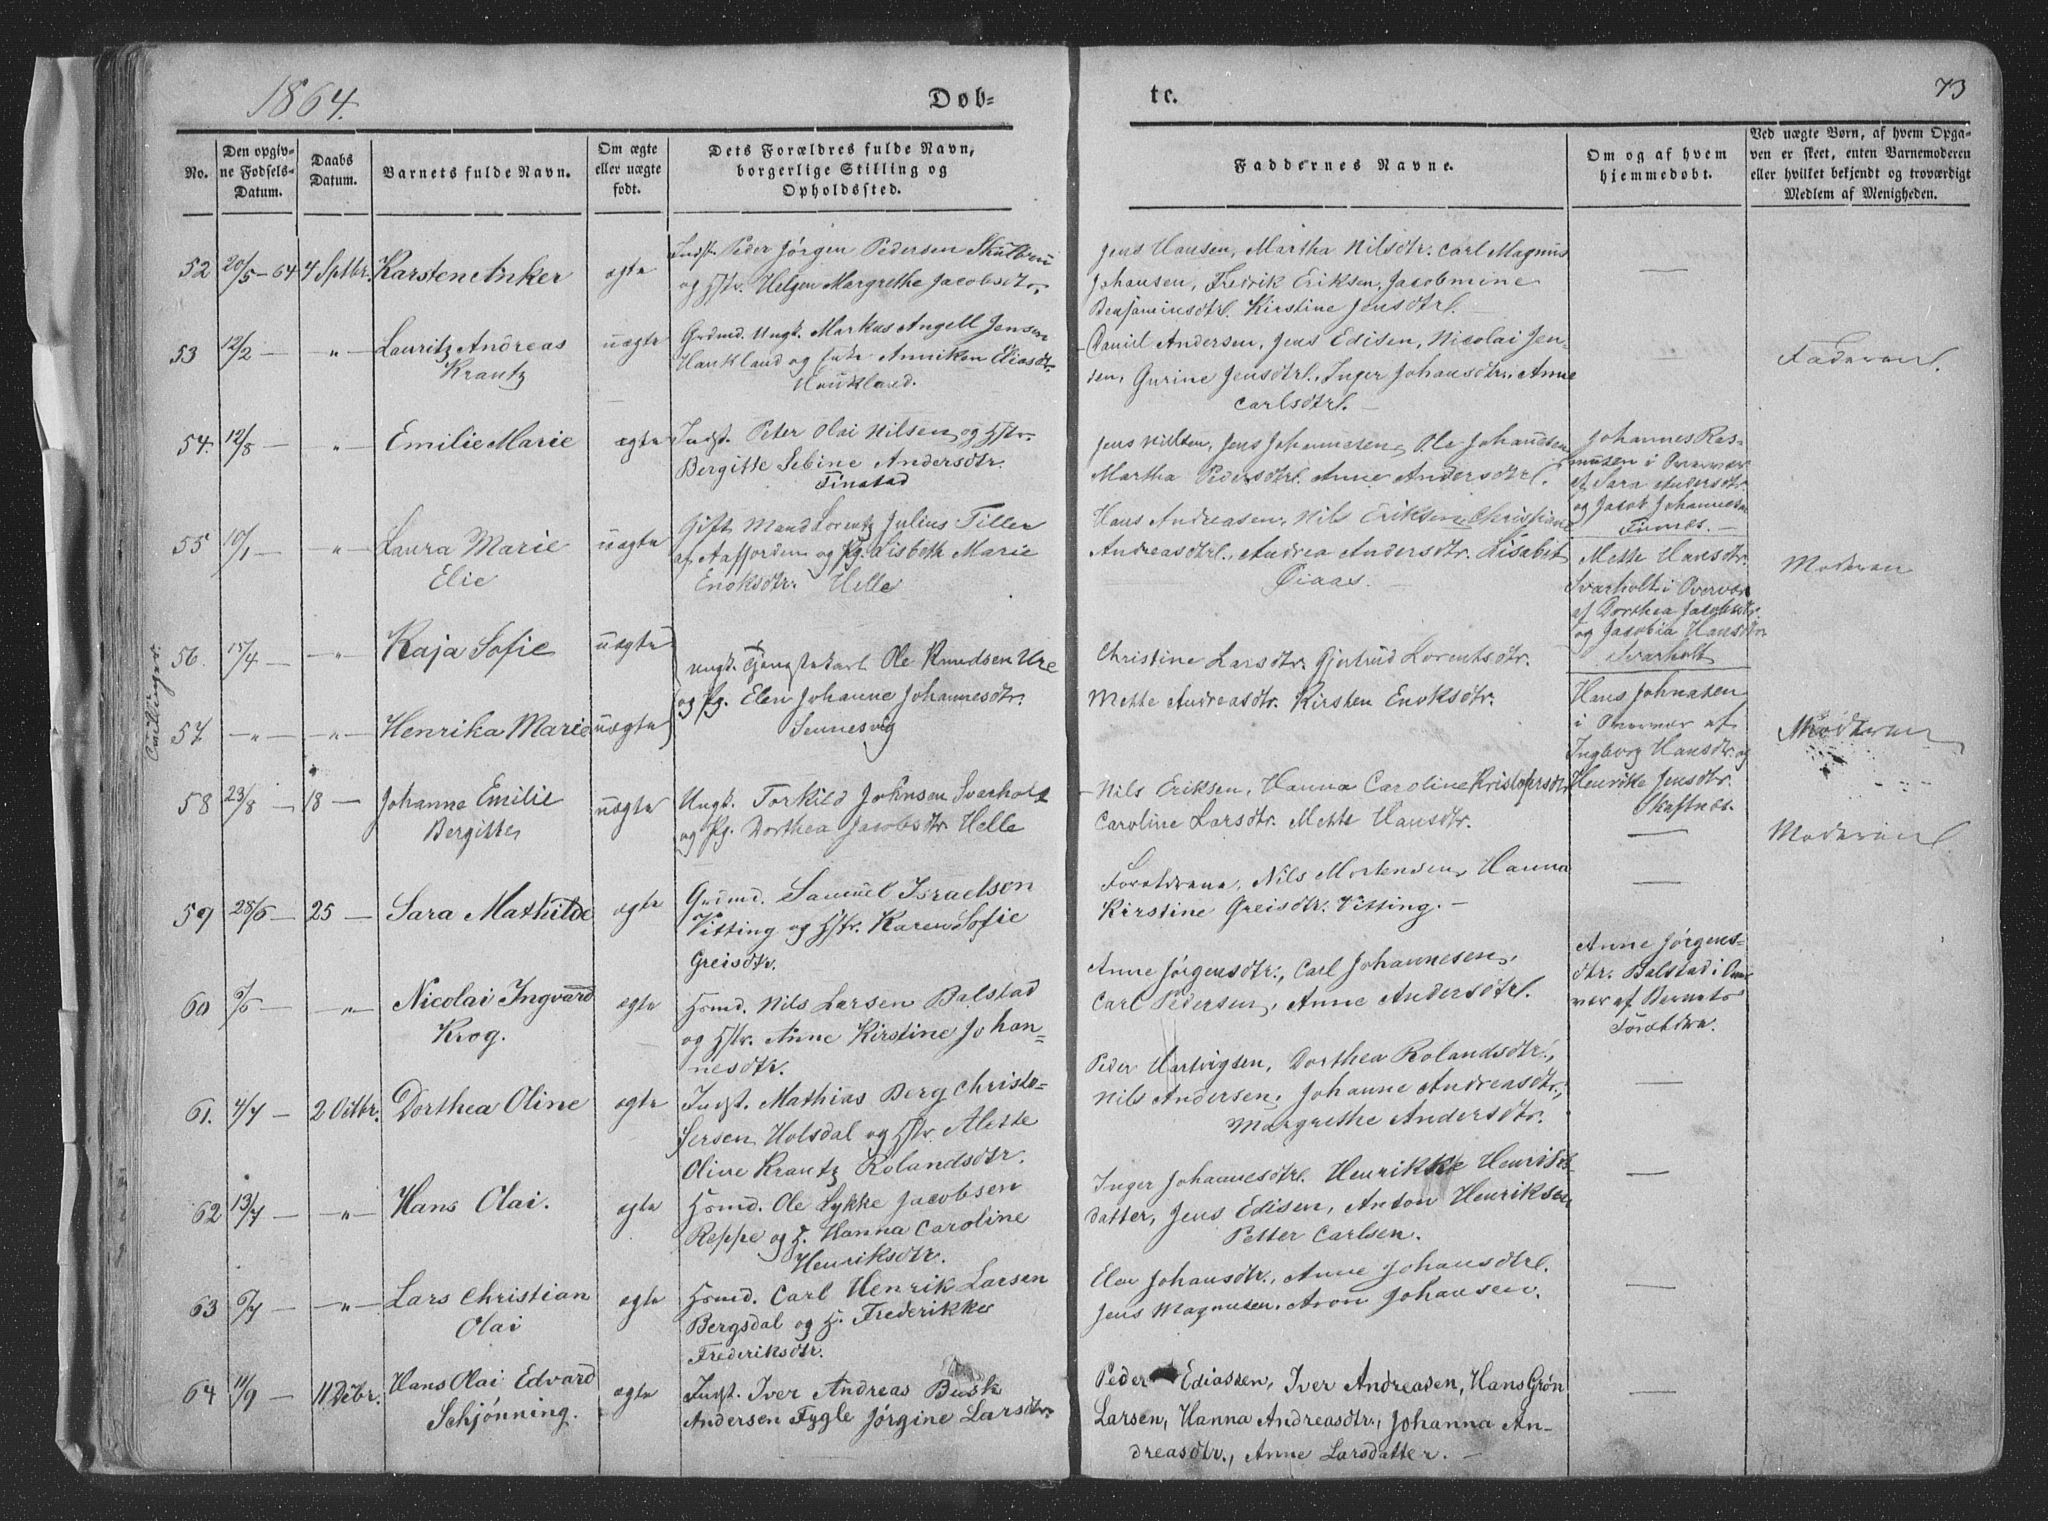 1864.
Døb-
te.
73
No.
Den opgiv-
ne Fødsels-
Datum.
Daabs
Datum.
Barnets fulde Navn.
Om ægte
eller uægte
født.
Dets Forældres fulde Navn,
borgerlige Stilling og
Opholdssted.
Faddernes Navne.
Om og af hvem
hjemmedøbt.
Ved uægte Børn, af hvem Opga-
ven er skeet, enten Barnemoderen
eller hvilket bekjendt og troværdigt
Medlem af Menigheden.
52 20/5-64 4 Septbr. Karsten Anker ægte
Indst. Peder Jørgen Pedersen
og Hstr. Helgen Margrethe Jacobsdtr.
Jens Hansen, Martha Nilsdtr. Carl Magnus
Johansen, Fredrik Eriksen, Jacobmine
Benjaminsdtr. Kirstine Jensdtr.
53 12/2 — " — Lauritz Andreas
Krantz
uægte
Grdmd. Ungk. Markus Angell Jensen
Haukland og Enke Anniken Eliasdtr.
Haukland.
Daniel Andersen, Jens Edisen, Nicolai Jen-
sen, Gurine Jensdtr., Inger Johansdtr., Anne
Carlsdtr. —
—
Faderen.
54. 12/8 — " — Emilie Marie ægte
Indst. Peter Olai Nilsen og Hstr.
Bergitte Sebine Andersdtr.
Finstad
Jens Nilsen, Jens Johannesen, Ole Johansen
Martha Pedersdtr. Anne Andersdtr.
Johannes Ras-
musen i Overvær
af Sara Andersdtr
og Jacob Johannesen
Finnes. —
55 10/1 — " — Laura Marie
Elie
uægte
Gift Mand Lorentz Julius Tiller
af Aafjorden og Pg. Lisbeth Marie
Enoksdtr. Helle
Hans Andreasen, Nils Eriksen, Christiane
Andreasdtr., Andrea Andersdtr. Lisabet
Øiaas. —
Mette Hansdtr.
Svarholt i Overvær
af Dorthea Jacobsdtr.
og Jacobia Hansdtr
Svarholt
Moderen
Tvillinger.
56. 15/4 — " — Kaja Sofie uægte
Ungk. Tjenestekarl Ole Knudsen Ure
og Pg. Elen Johanne Johannesdtr.
Sennesvig
Christine Larsdtr. Gjertrud Lorentsdtr.
Mette Andreasdtr. Kirsten Enoksdtr.
57. — " — — " — Henrika Marie uægte
Hans Johnsen
i Overvær af
Ingborg Hansdtr. og
Henrikke Jensdtr.
Kaftnes.
Moderen
58 23/8 — 18 — Johanne Emilie
Bergitte
uægte
Ungk. Torkild Johnsen Sverholt
og Pg. Dorthea Jacobsdtr Helle
Nils Eriksen, Hanna Caroline Kristofersdtr
Caroline Larsdtr. Mette Hansdtr.
—
Moderen.
59 28/6 — 25 — Sara Mathilde ægte
Grdmd. Samuel Israelson
Vitting og Hstr. Karen Sofie
Greisdtr.
Forældrene, Nils Mortensen, Hanna
Kirstine Greisdtr. Vitting. —
—
60 — " — Nicolai Ingvard
Krog.
ægte
Hsmd. Nils Larsen Balstad
og Hstr. Anne Kirstine Johan-
nesdtr.
Anne Jørgensdtr., Carl Johannesen,
Carl Pedersen, Anne Andersdtr.
Anne Jørgens-
dtr. Balstad i Over
vær af Barnets
Forældre.
61. 4/7 — 2 Octbr. Dorthea Oline ægte
Indst. Mathias Berg Christo-
fersen Holsdal og Hstr. Alette
Oline Krantz Rolandsdtr.
Peder Hartvigsen, Dorthea Rolandsdtr.,
Nils Andersen, Johanne Andreasdtr.,
Margrethe Andersdtr.
—
62 13/7 — — " — Hans Olai. ægte
Hsmd. Ole Lykke Jacobsen
Reppe og H. Hanna Caroline
Henriksdtr.
Inger Johannesdtr. Henrikke Henriks-
datter, Jens Edisen, Anton Henriksen
Petter Carlsen.
—
63 6/7 — — " — Lars Christian
Olai
ægte
Hsmd. Carl Henrik Larsen
Bergsdal og H. Frederikke
Frederiksdtr.
Elen Johansdtr., Anne Johansdtr.
Jens Magnusen, Aron Johansen.
—
64 11/9 — 11 Debr. Hans Olai Edvard
Schjønning.
ægte
Indst. Iver Andreas Busk
Andersen Fygle Jørgine Larsdtr.
Peder Ediassen, Iver Andreasen, Hans Grøn
Larsen, Hanna Andreasdtr., Johanna An-
dreasdtr., Anne Larsdatter. —
—